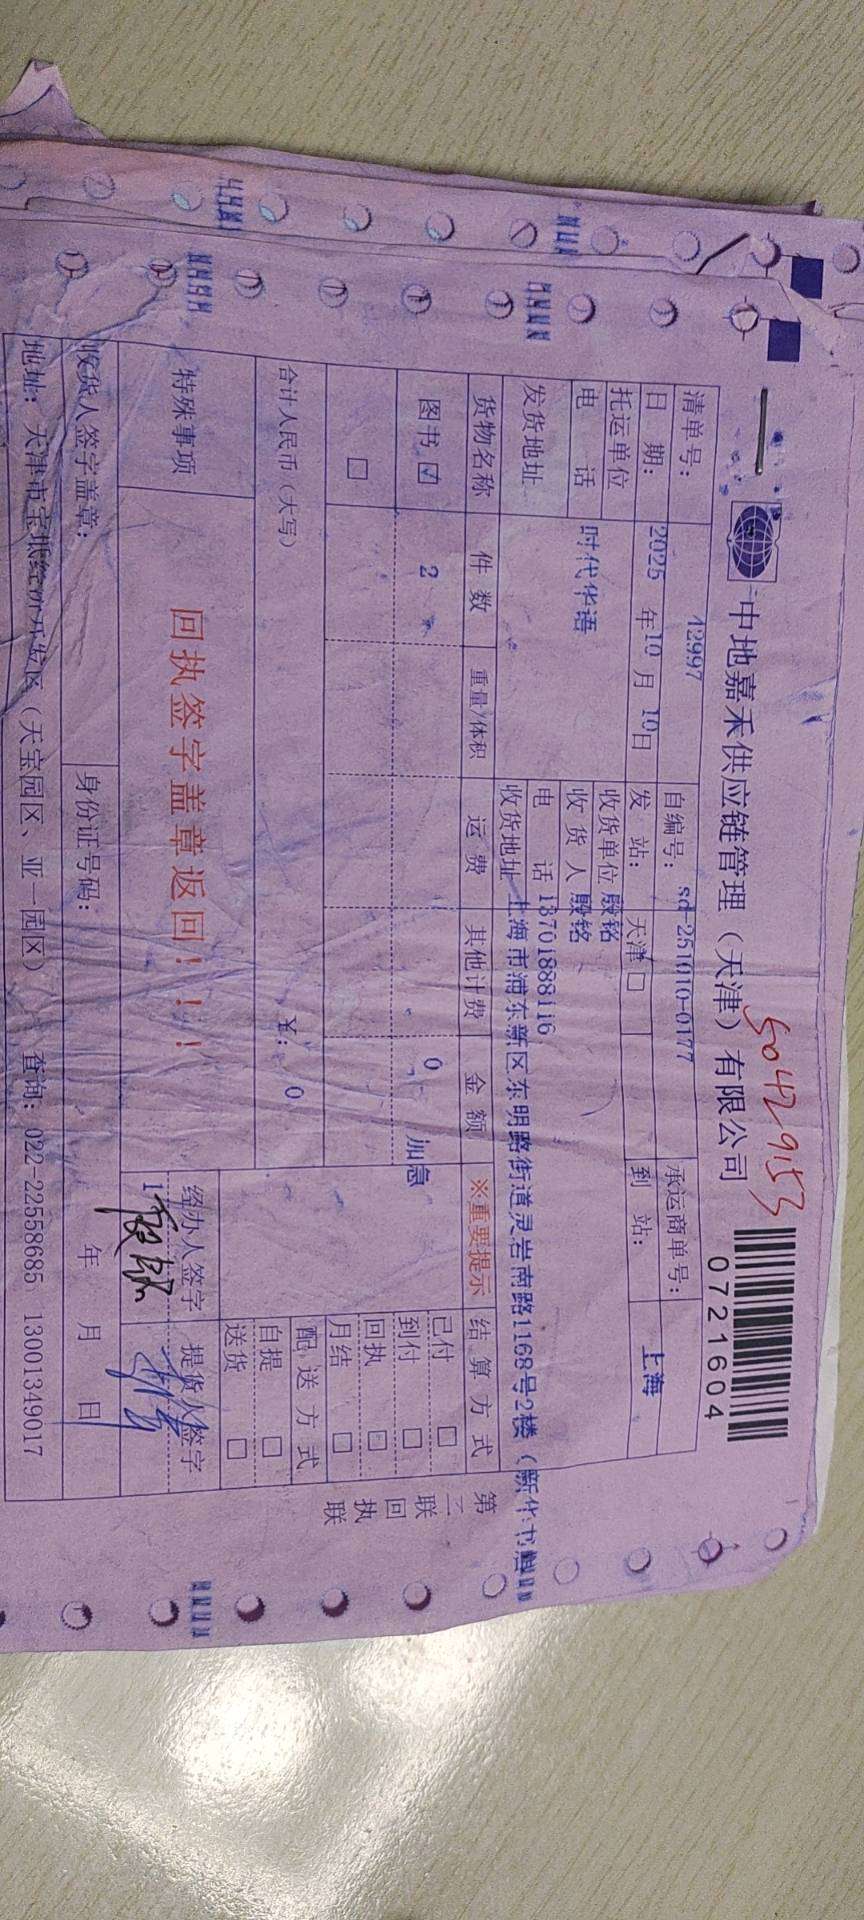 50429153
中地嘉禾供应链管理（天津）有限公司
0721604
清单号： 42997 自编号： sd-251010-0177 承运商单号：
日 期： 2025 年 10 月 10 日 发 站： 天津 □ 到 站： 上海
托运单位 时代华语 收货单位 殷铭
电 话 收 货 人 殷铭
发货地址 电 话 13701888116
收货地址 上海市浦东新区东明路街道灵岩南路1168号2楼（新华书
货物名称 件 数 重量/体积 运 费 其他计费 金 额 ※重要提示 结 算 方 式
图书 ☑ 2 0 加急 已付 □
到付 □
□ 回执 □
月结 □
合计人民币（大写） ¥： 0 配 送 方 式
自提 □
送货 □
特殊事项 回执签字盖章返回！！！ 经办人签字 提货人签字
1
收货人签字盖章： 身份证号码： 年 月 日
地址：天津市宝坻经济开发区（天宝园区、亚一园区） 查询：022-22558685 13001349017
第二联 回执联